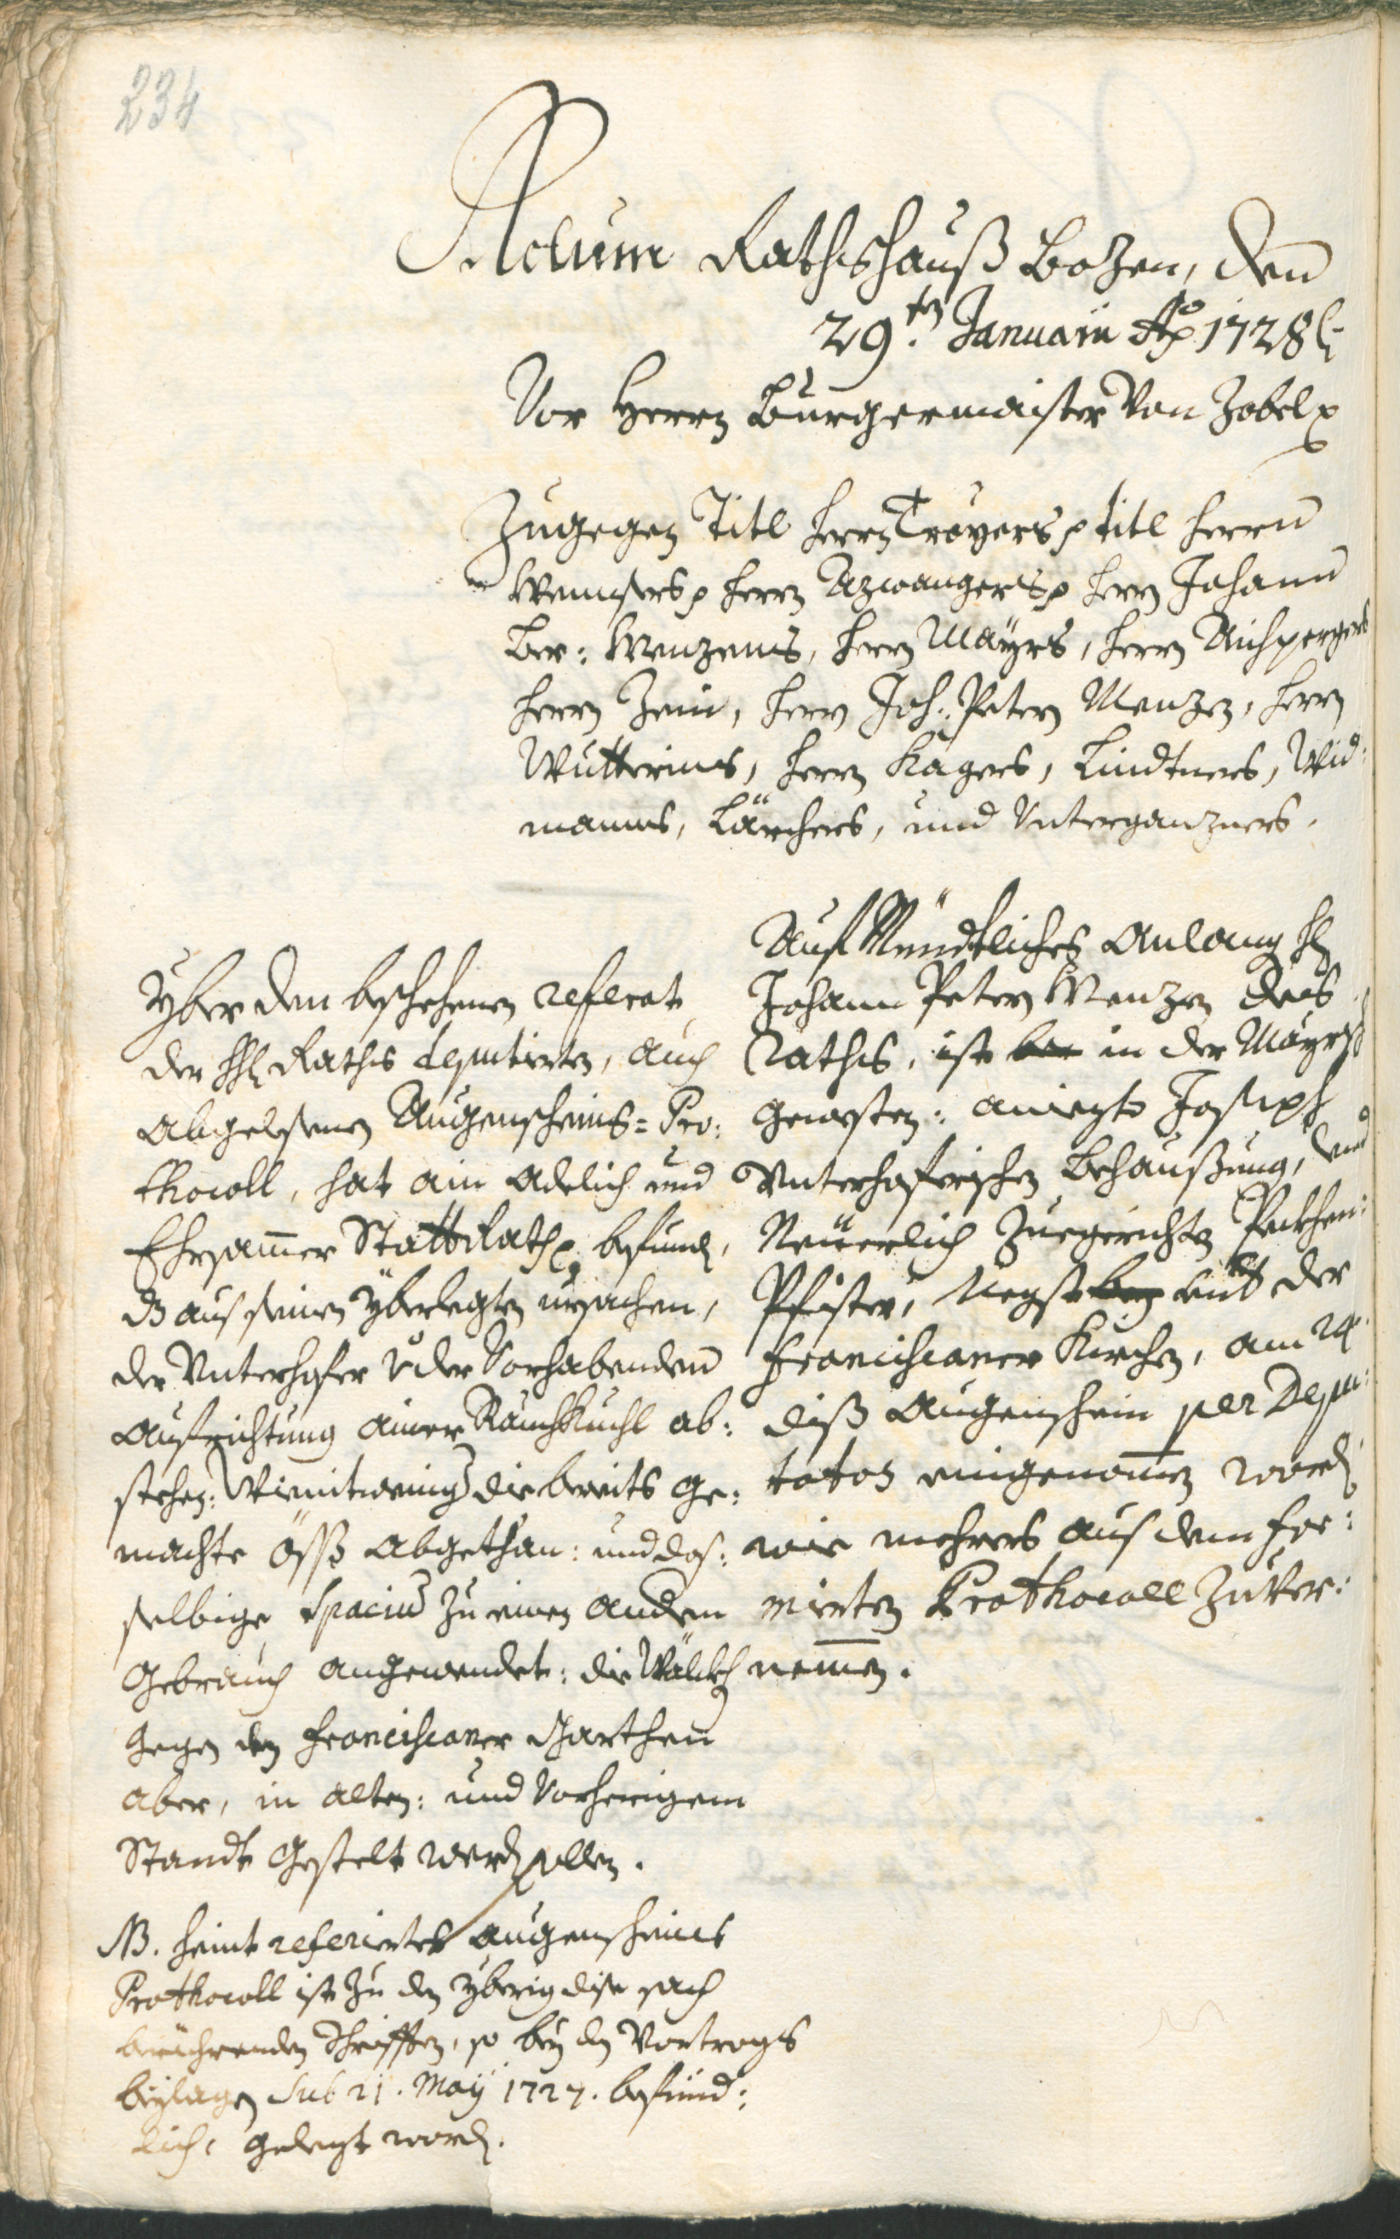 234
Actum Rathshauß Bozen, den
29.ten Januarii Ao 1728
Vor Herrn Burgermaister Von Zobel
Zugegen Titl Herrn Troyers, titl Herrn
Wenseres, Herrn Azwangers, Herrn Johann
Ber: Menzens, Herrn Mayrs, Herrn Aichpergers
Herrn Zeni, Herrn Joh: Petern Menzen, Herrn
Wutterins, Herrn Kagers, Lindtners, Wid:
manns, Lärchers, und Unterganzners.
Auf Mündtliches Anlang H
Johann Petern Menzen des
Raths, ist in der Mayrs
Gewesten: aniezto Joseph
Unterhoferischen Behaußung, und
Neüerlich Zuegerichte Pökhen:
Pfister, Negst der
Franciscaner Kirchen, am 24
diß Augenschein per Depu:
tatos eingenommen word
wie mehrers aus dem for:
mierten Prothocoll Zuver:
nemmen.
Yber den beschehenen referat
der HH Raths deputierten, auch
Abgelesenen Augenscheins=Pro:
thocoll, hat ain Adelich und
Ehrsammer StattRath befunden,
Das aus seinen yberlegten ursachen,
der Unterhofer Vor der Vorhabenden
Aufrichtung ainer RauchKuchl ab:
stehen: die bereits ge:
machte Öß abgethan: und das:
selbige Spacium zu einen andern
Gebrauch angewendet: die
Gegen den Franciscaner Garthen
aber, in alten: und Vorherigem
Standt Gestelt werden sollen.
NB. heint referiertes Augenscheins
Prothocoll ist zu den yberig dise sach
berüehrenden Schrifften, so bey den Vortrags
beylagen Sub 21. May 1727. befünd:
lich, gelegt worden.